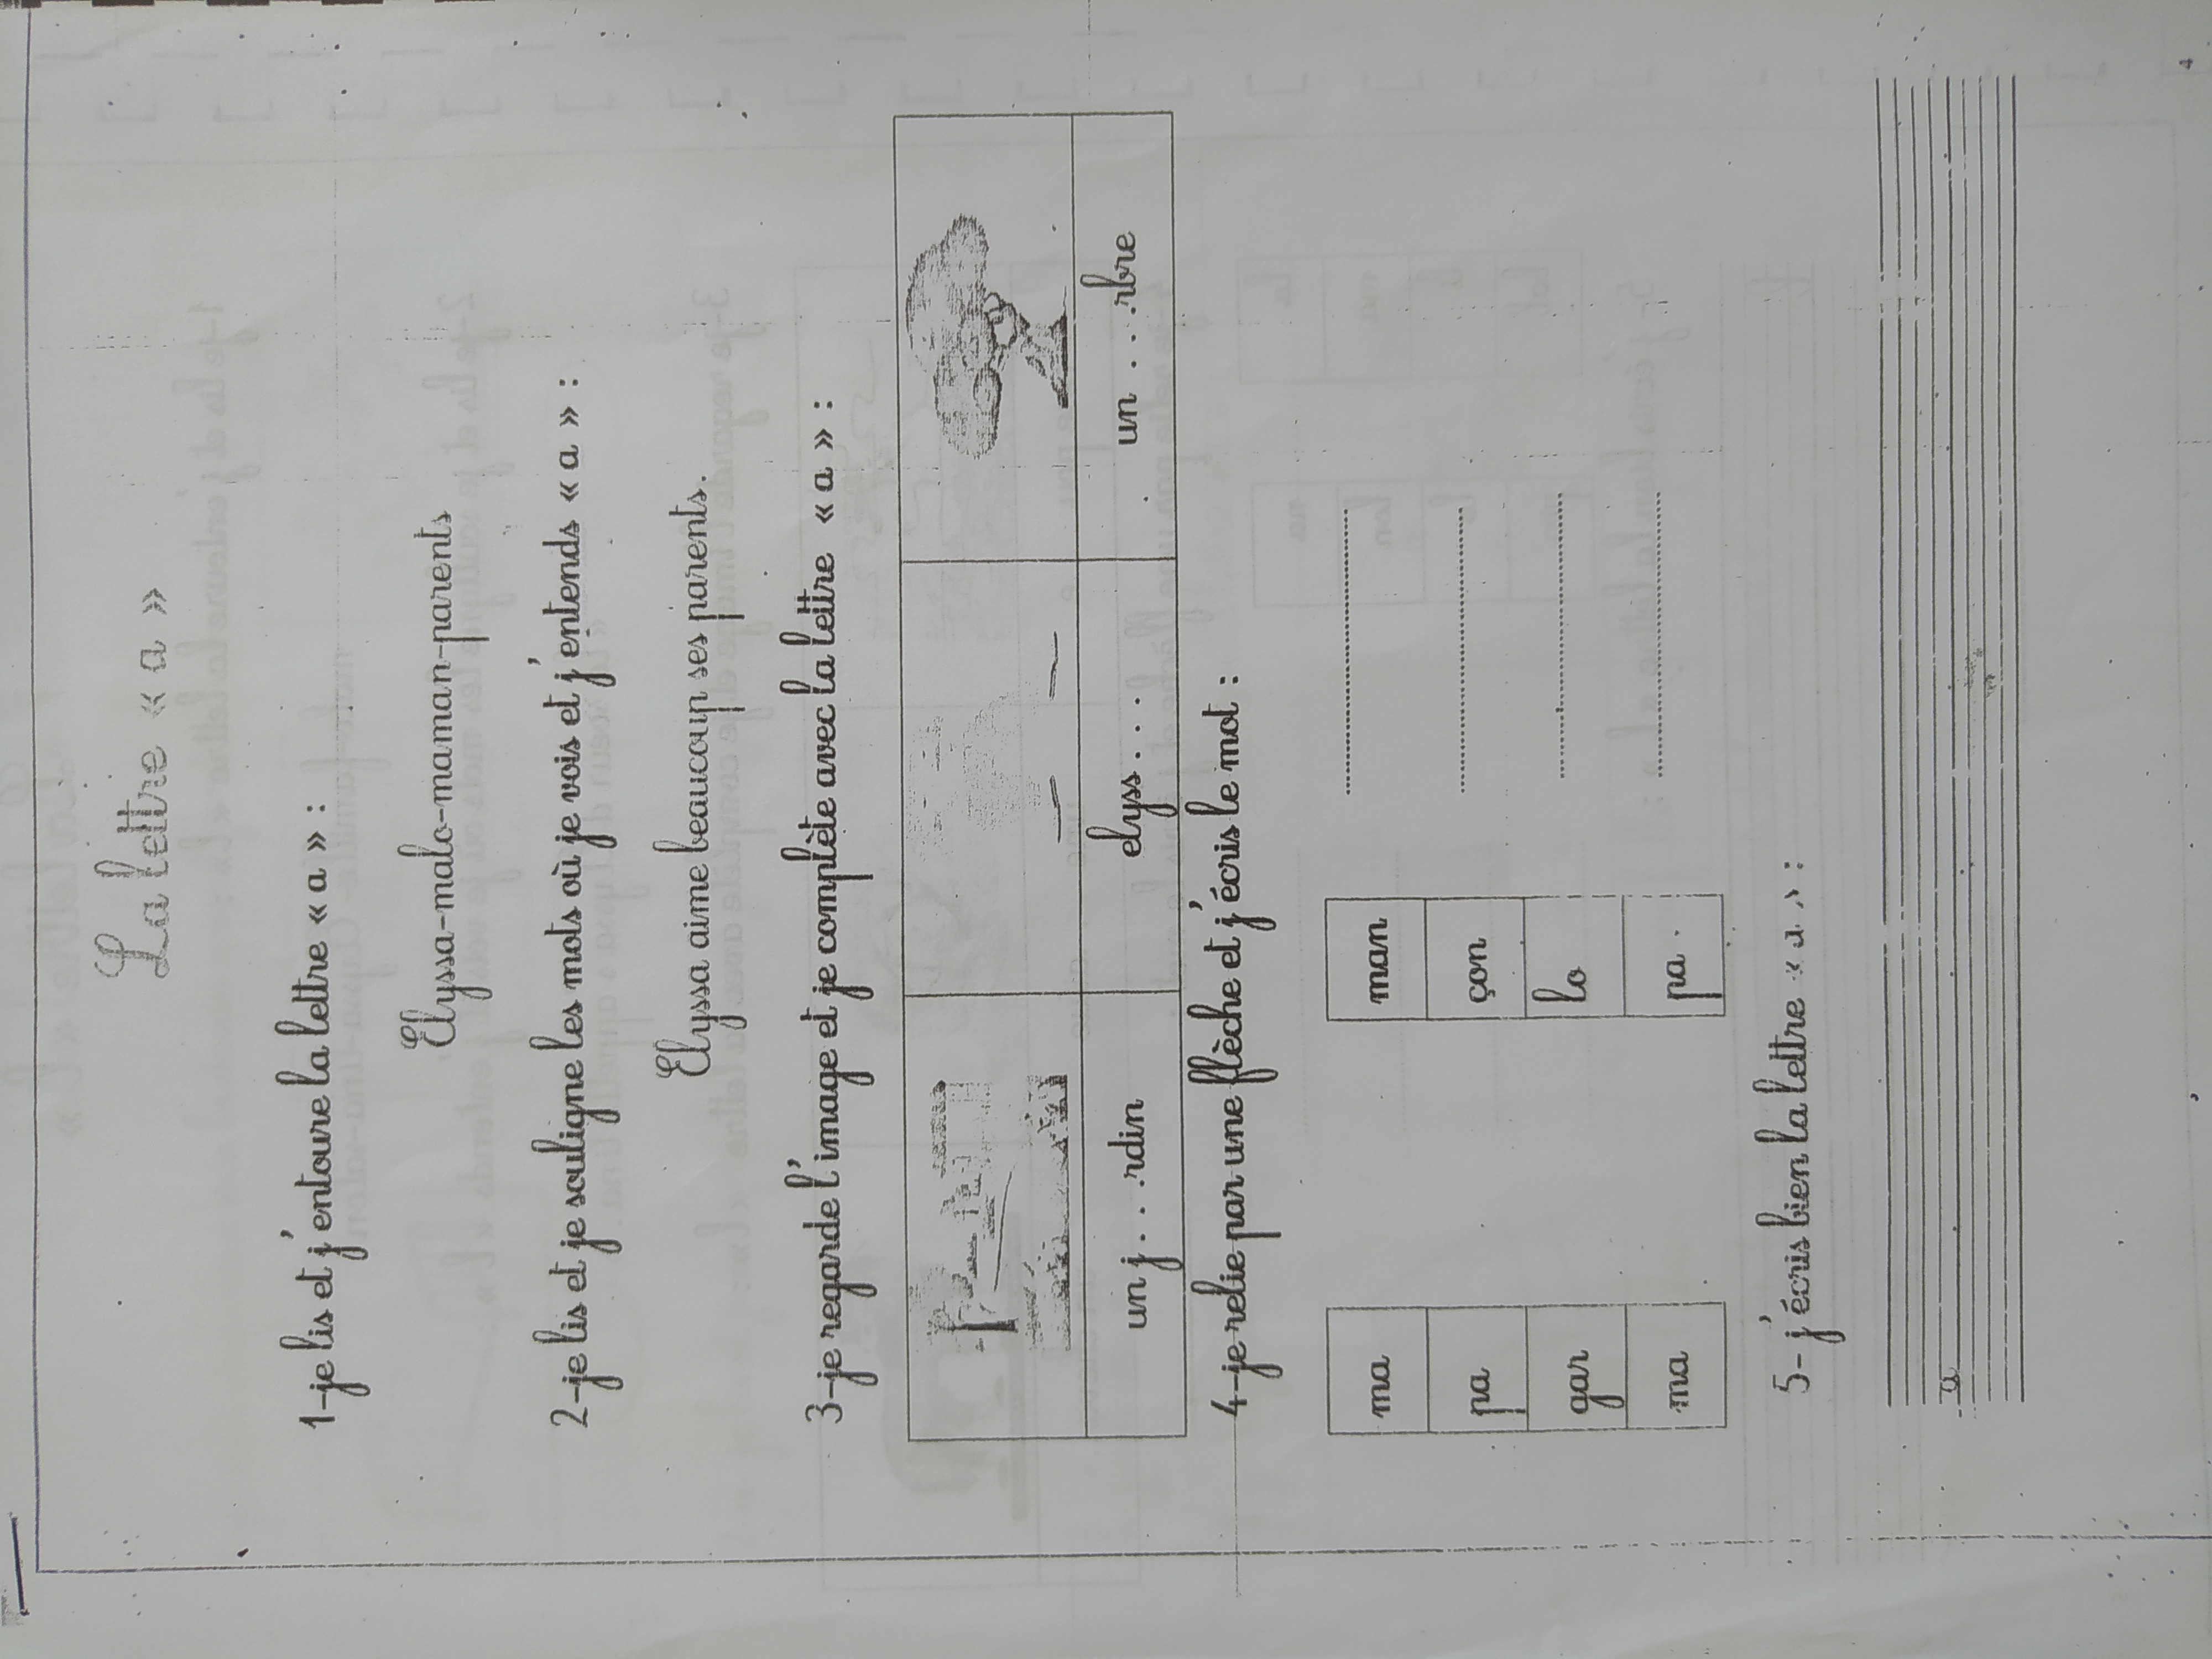 La lettre « a »
1-je lis et j'entoure la lettre « a » :
Elyssa-malo-maman-parents
2-je lis et je souligne les mots où je vois et j'entends « a » :
Elyssa aime beaucoup ses parents.
3-je regarde l'image et je complète avec la lettre « a » :
un j...rdin elyss.... un ...rbre
4-je relie par une flèche et j'écris le mot :
ma man ....................
pa çon ....................
gar lo ....................
ma pa ....................
5- j'écris bien la lettre « a » :
a
4